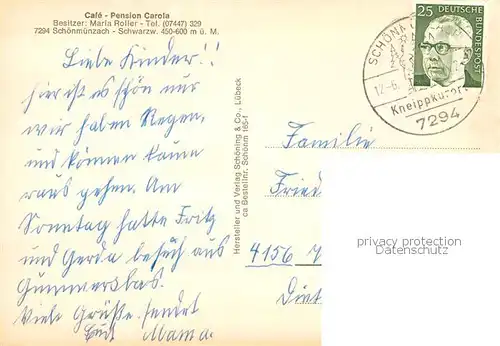 Café - Pension Carola
Besitzer: Maria Roller - Tel. (07447) 329
7294 Schönmünzach - Schwarzw. 450-600 m ü. M.
Liebe Kinder!!
hier ist es schön nur
wir haben Regen,
und können kaum
raus gehen. Am
Sonntag hatte Fritz
und Gerda besuch aus
Gummersbas.
Viele Grüße sendet
Euch Mama.
Hersteller und Verlag Schöning & Co., Lübeck
ca Bestellnr. Schönm 165-f
SCHÖN
12.-6.
Kneippkuror
7294
25 DEUTSCHE
BUNDESPOST
Familie
Fried
4156
Diet
privacy protection
Datenschutz